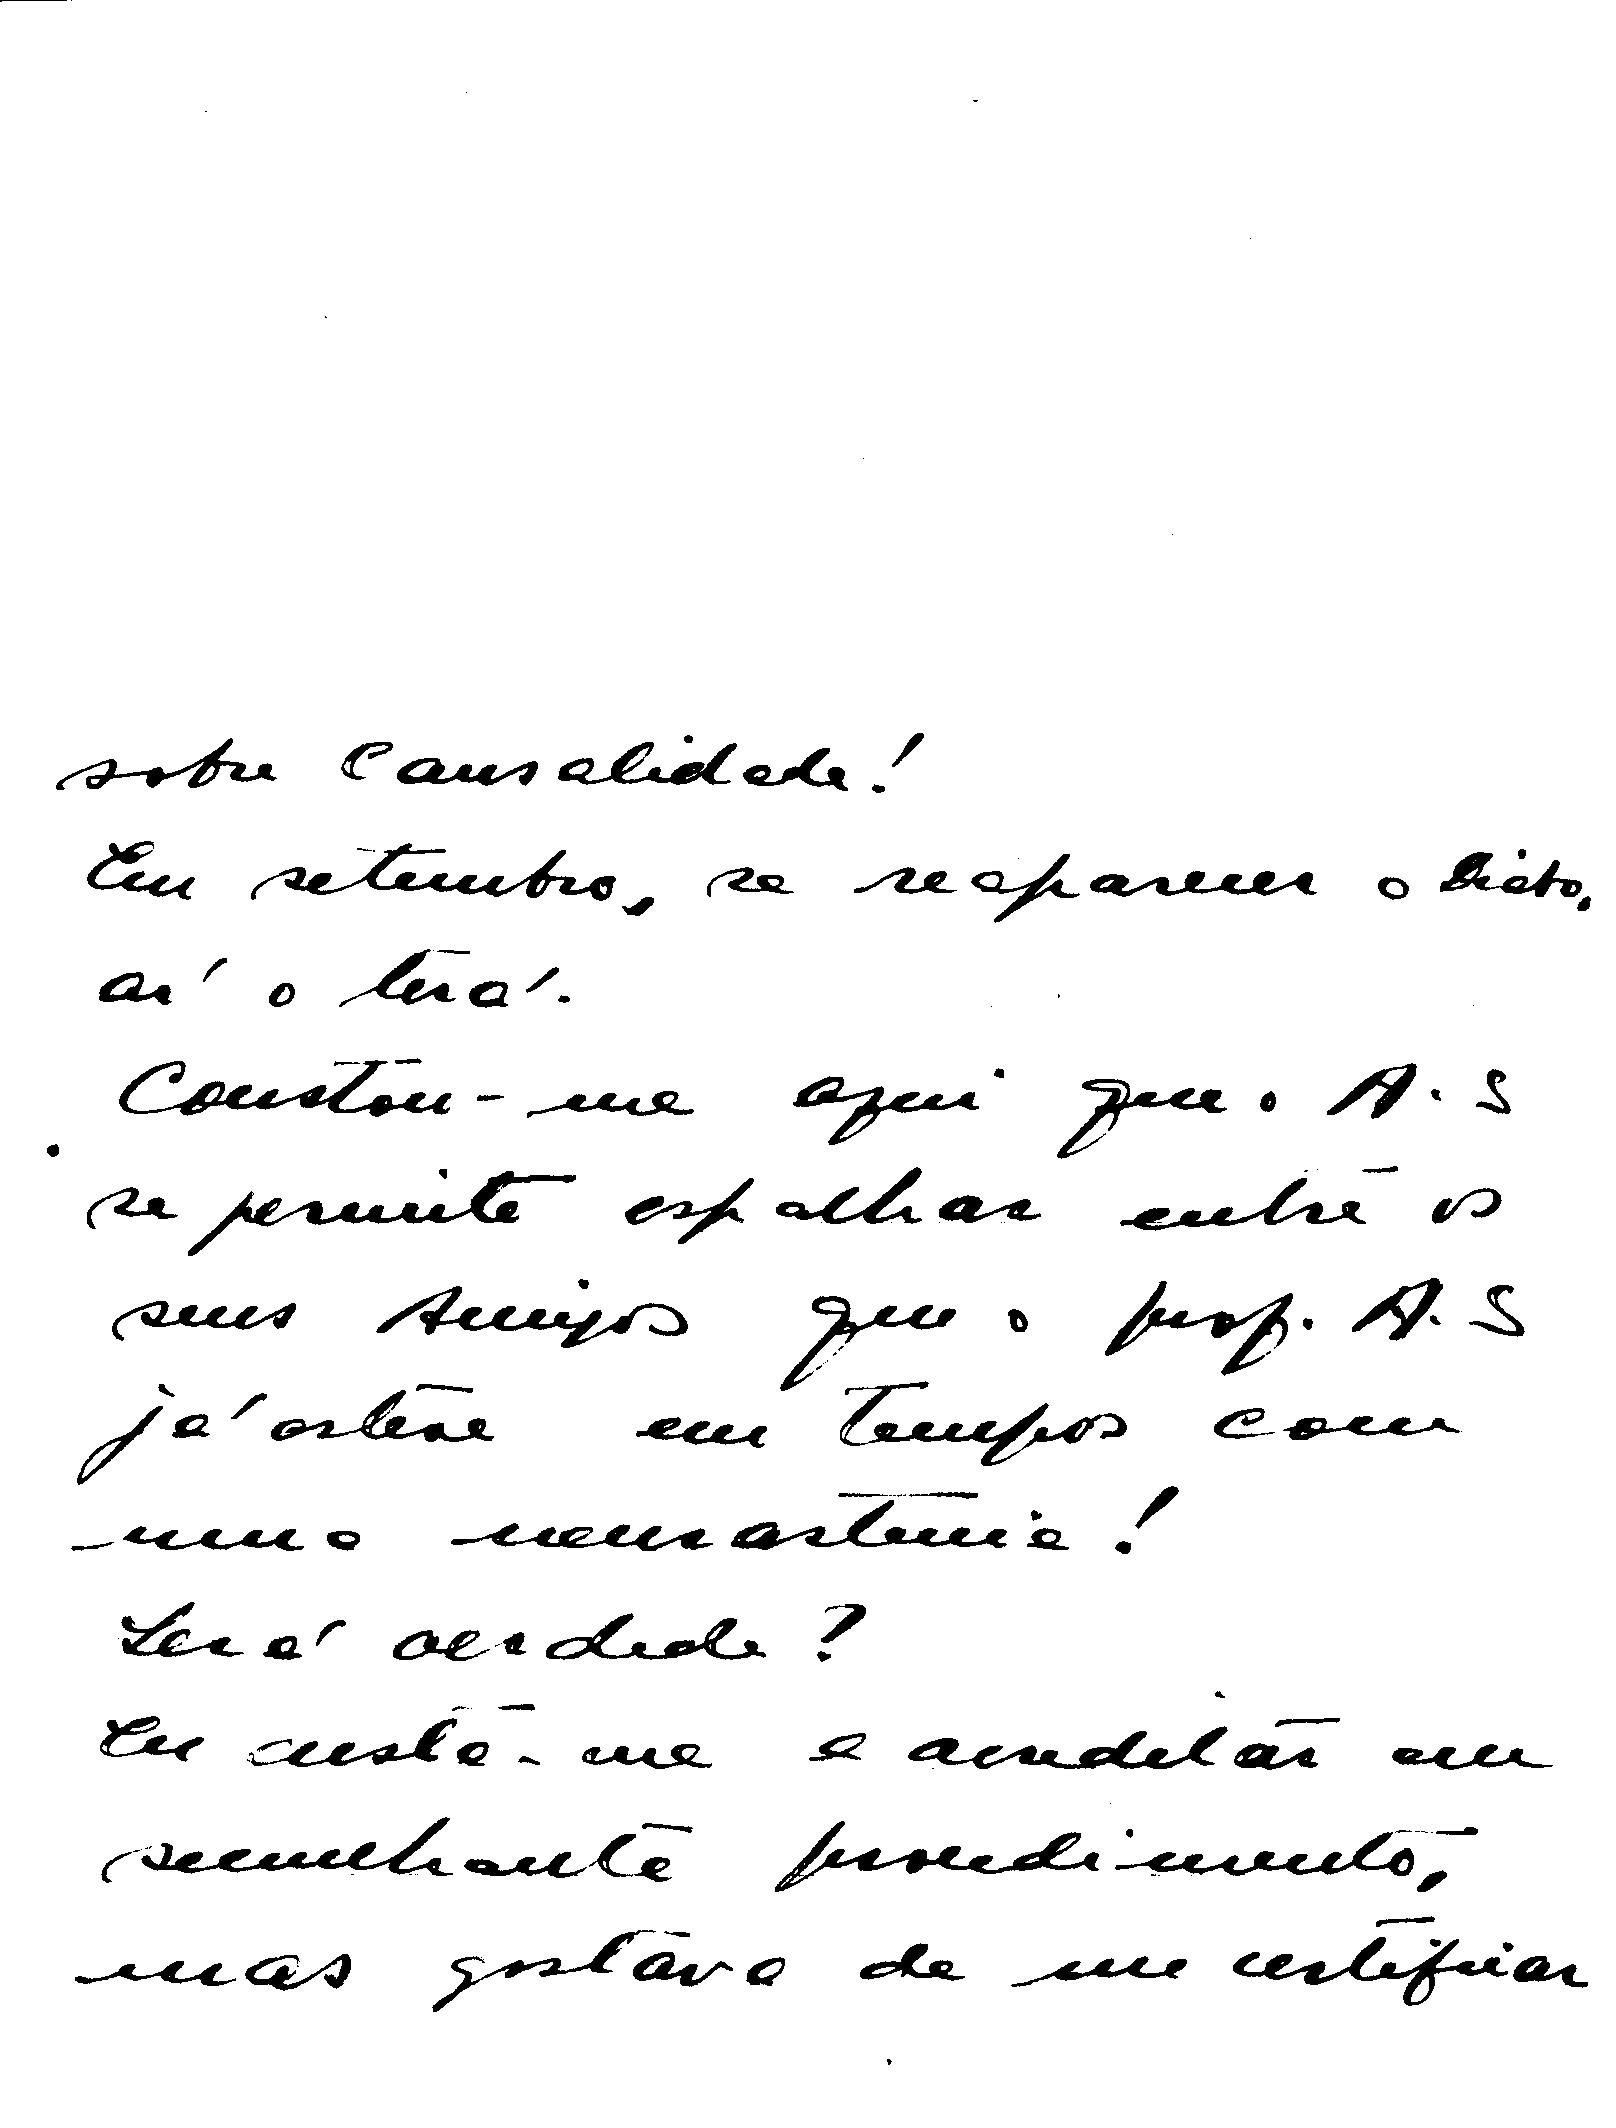 sobre Causalidade!
Em setembro, se reaparecer o Diabo,
aí o terá.
Constou-me aqui que o A. S
se permite espalhar entre os
seus Amigos que o prof. A. S
já esteve em tempos com
uma neurastenia!
Será verdade?
Eu custa-me a acreditar em
semelhante procedimento,
mas gostava de me certificar